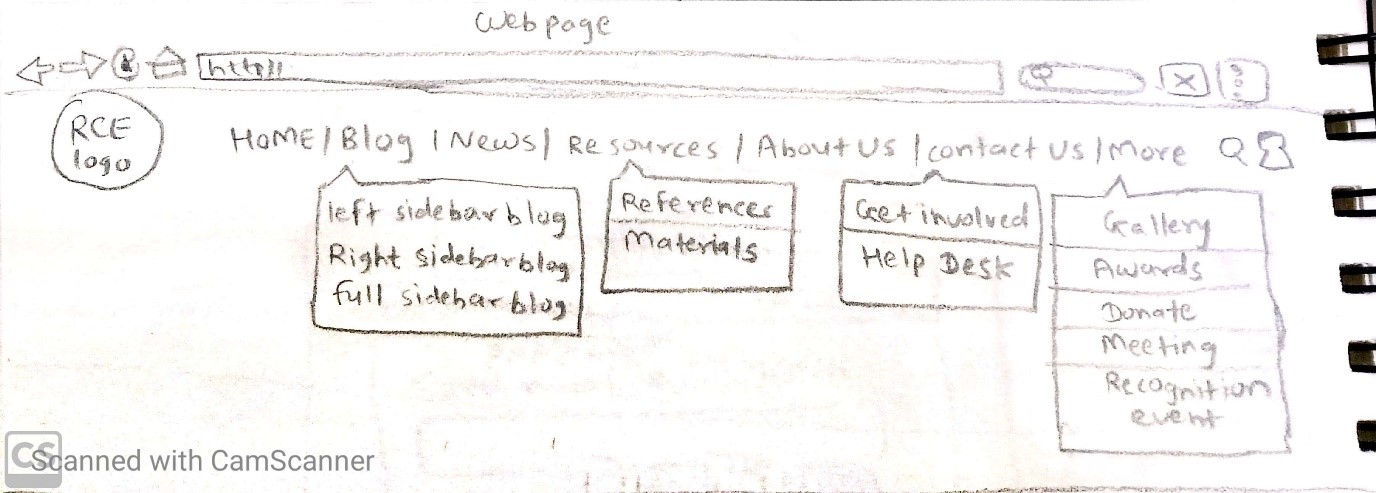 Web page
http//
RCE
logo
HOME | Blog | News | Resources | About Us | contact us | More
left sidebar blog
Right sidebar blog
full sidebar blog
References
Materials
Get involved
Help Desk
Gallery
Awards
Donate
Meeting
Recognition
event
CS
Scanned with CamScanner